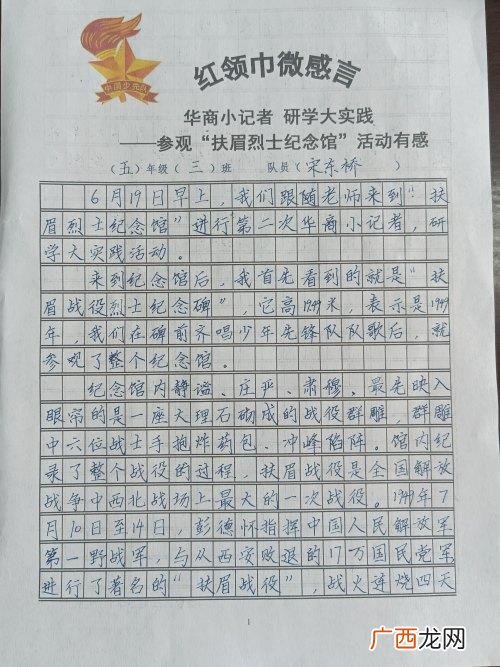 中国少先队
红领巾微感言
华商小记者 研学大实践
——参观“扶眉烈士纪念馆”活动有感
（五）年级（三）班 队员（宋东桥）
6月19日早上，我们跟随老师来到“扶
眉烈士纪念馆”进行第二次华商小记者，研
学大实践活动。
来到纪念馆后，我首先看到的就是“扶
眉战役烈士纪念碑”，它高19.49米，表示是1949
年，我们在碑前齐唱少年先锋队队歌后，就
参观了整个纪念馆。
纪念馆内静谧、庄严、肃穆，最先映入
眼帘的是一座大理石砌成的战役群雕，群雕
中六位战士手抱炸药包、冲峰陷阵。馆内纪
录了整个战役的过程，扶眉战役是全国解放
战争中西北战场上最大的一次战役。1949年7
月10日至14日，彭德怀指挥中国人民解放军
第一野战军，与从西安败退的17万国民党军
进行了著名的“扶眉战役”，战火连烧四天
1
广西龙网